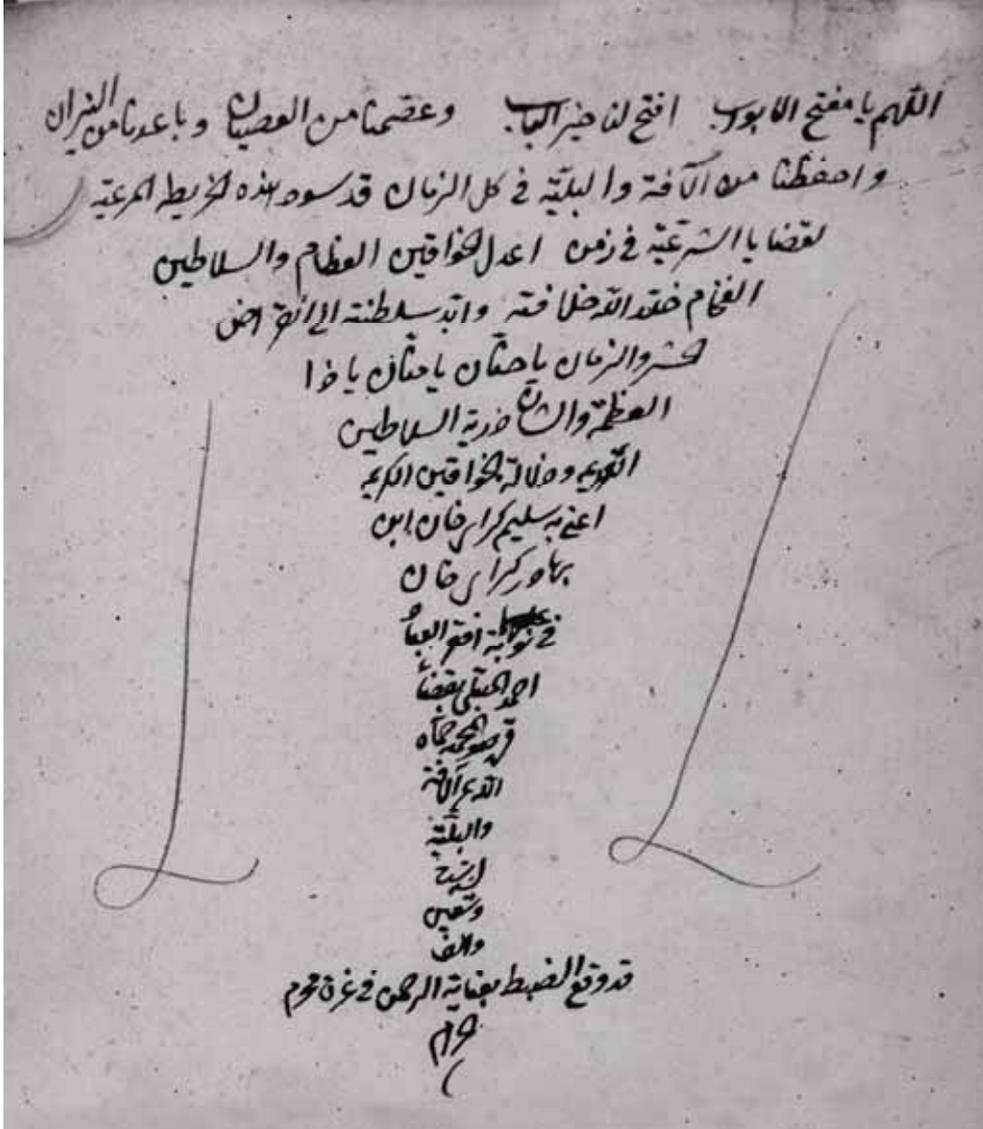 اللهم يا مفتح الابوب افتح لنا خير الباب وعصمنا من العصيان وباعدنا من النيران
واحفظنا من الآفة والبلية في كل الزمان قد سود هذه الخريطة المرعية
لقضايا الشرعية في زمن اعدل الخواقين العظام والسلاطين
الفخام خلد الله خلافته وابد سلطنته الى انقراض
الحشر والزمان يا حنّان يا منّان يا ذا
العظمة والشان ذرية السلاطين
الكريم وسلالة الخواقين الكريم
اعني به سليم كراي خان ابن
بهادر كراي خان
في نوبة افقر العباد
احمد المبتلى بقضاء
قره صو حماه
الله عن الآفة
والبلية
لسنة
وتسعين
والف
قد وقع الضبط بعناية الرحمن في غرة محرم